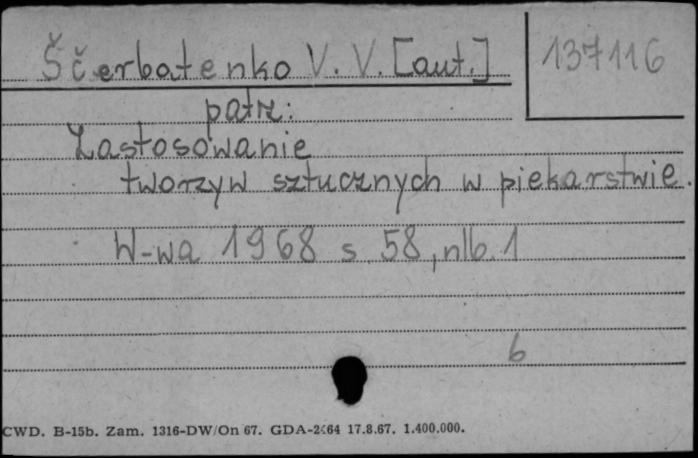 Ščerbatenko V. V. [aut.]
137116
patrz:
Zastosowanie
tworzyw sztucznych w piekarstwie.
W-wa 1968 s. 58, nlb. 1
6
CWD. B-15b. Zam. 1316-DW/On 67. GDA-2464 17.8.67. 1.400.000.